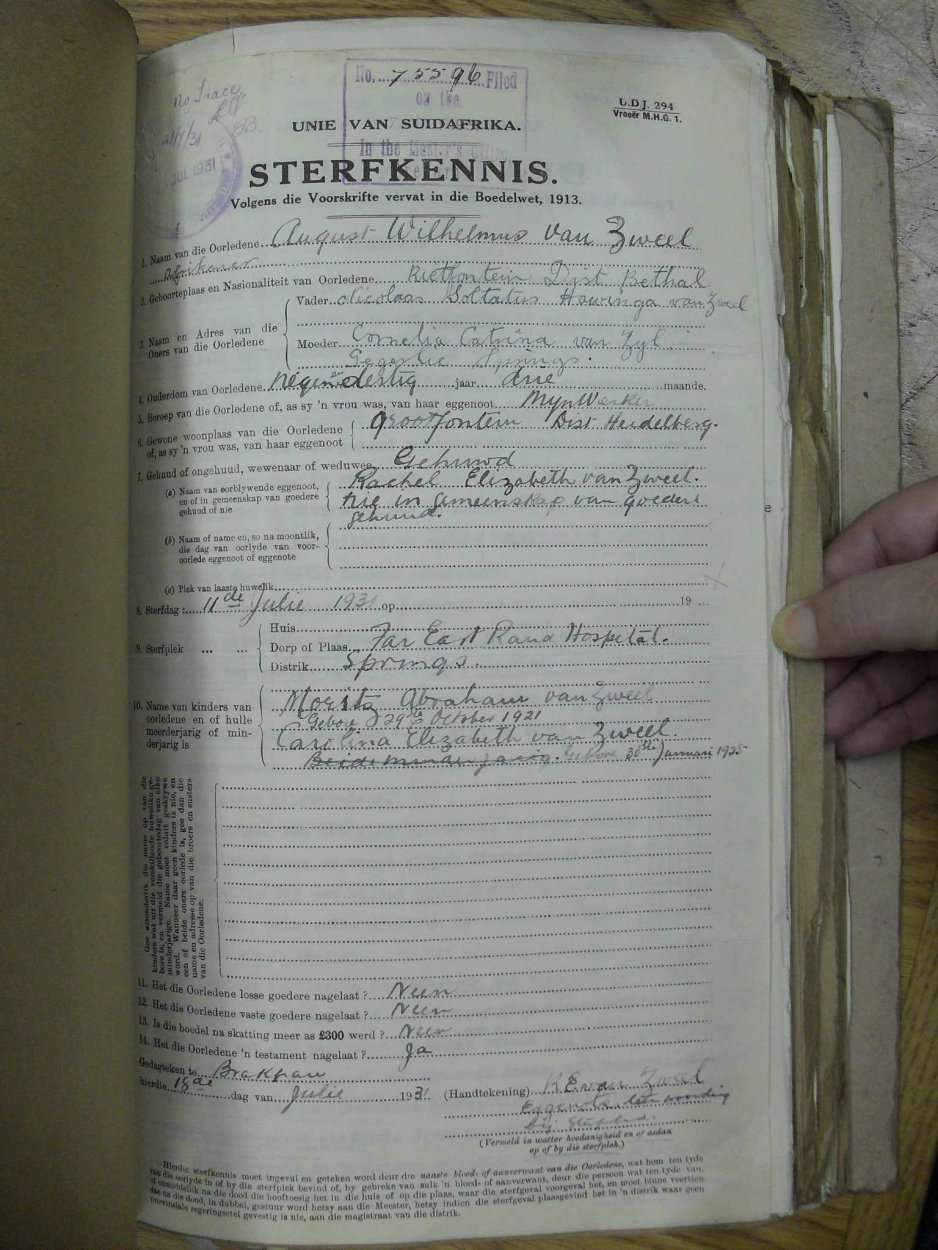 No. 75596 Filed
on the
in the Master's Office
No Trace
21/7/31
JUL 1931
U.D.J. 294
Vroeër M.H.G. 1.
UNIE VAN SUIDAFRIKA.
STERFKENNIS.
Volgens die Voorskrifte vervat in die Boedelwet, 1913.
1. Naam van die Oorledene August Wilhelmus van Zweel
Afrikaner
2. Geboorteplaas en Nasionaliteit van Oorledene Rietfontein Dist Bethal
3. Naam en Adres van die Ouers van die Oorledene
Vader Nicolaas Soltatius Howinga van Zweel
Moeder Cornelia Catrina van Zyl
Gegertie Springs.
4. Ouderdom van Oorledene negen en dertig jaar drie maande.
5. Beroep van die Oorledene of, as sy 'n vrou was, van haar eggenoot Mynwerker
6. Gewone woonplaas van die Oorledene of, as sy 'n vrou was, van haar eggenoot Grootfontein Dist Heidelberg.
7. Gehuud of ongehuud, wewenaar of weduwee Gehuwd
(a) Naam van oorblywende eggenoot, en of in gemeenskap van goedere gehuud of nie
Rachel Elizabeth van Zweel.
nie in gemeenskap van goedere
gehuud.
(b) Naam of name en, so na moontlik, die dag van oorlyde van vooroorlede eggenoot of eggenote
(c) Plek van laaste huwelik
8. Sterfdag : 11de Julie 1931 op 19
9. Sterfplek ... ...
Huis
Dorp of Plaas Far East Rand Hospital.
Distrik Springs.
10. Name van kinders van oorledene en of hulle meerderjarig of minderjarig is
Moritz Abraham van Zweel
Gebore 29ste October 1921
Carolina Elizabeth van Zweel.
Beide minderjarig. Gebore 30ste Januari 1925
Gee afsonderlik die name op van die kinders wat uit die verskillende huwelike gebore is, en vermeld die geboortedag van elke minderjarige. Name moet voluit geskrywe word. Wanneer daar geen kinders is nie, en een of beide ouers oorlede is, gee dan die name en adresse op van die broers en susters van die Oorledene.
11. Het die Oorledene losse goedere nagelaat ? Neen
12. Het die Oorledene vaste goedere nagelaat ? Neen
13. Is die boedel na skatting meer as £300 werd ? Neen
14. Het die Oorledene 'n testament nagelaat ? Ja
Gedagteken te Brakpan
hierdie 18de dag van Julie 1931
(Handtekening) R E van Zweel
Eggenote
(Vermeld in watter hoedanigheid en of asdan
op of by die sterfplek.)
Hierdie sterfkennis moet ingevul en geteken word deur die naaste bloed- of aanverwant van die Oorledene, wat hom ten tyde
van die oorlyde in of by die sterfplek bevind of, by gebreke van sulk 'n bloed- of aanverwant, deur die persoon wat ten tyde van
of onmiddelik na die dood die hooftoesig het in die huis of op die plaas, waar die sterfgeval voorgeval het, en moet binne veertien
dae na die dood, in dubbel, gestuur word hetsy aan die Meester, hetsy indien die sterfgeval plaasgevind het in 'n distrik waar geen
provinsiale regeringsetel gevestig is nie, aan die magistraat van die distrik.